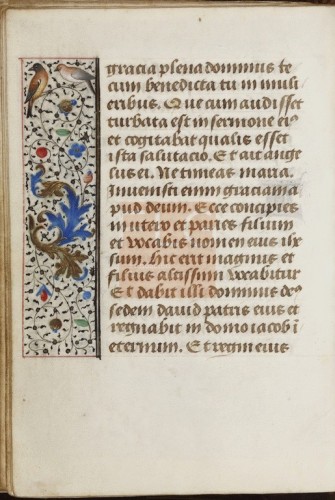 gracia plena dominus te
cum benedicta tu in muli
eribus. Que cum audisset
turbata est in sermone ei᷒
et cogitabat qualis esset
ista salutacio. Et ait ange
lus ei. Ne timeas maria.
Invenisti enim graciam a
pud deum. Ecce concipies
in utero et paries filium
et vocabis nomen eius ihe
sum. Hic erit magnus et
filius altissimi vocabitur
Et dabit illi dominus de᷒
sedem david patris eius et
regnabit in domo iacob ī
eternum. Et regni eius